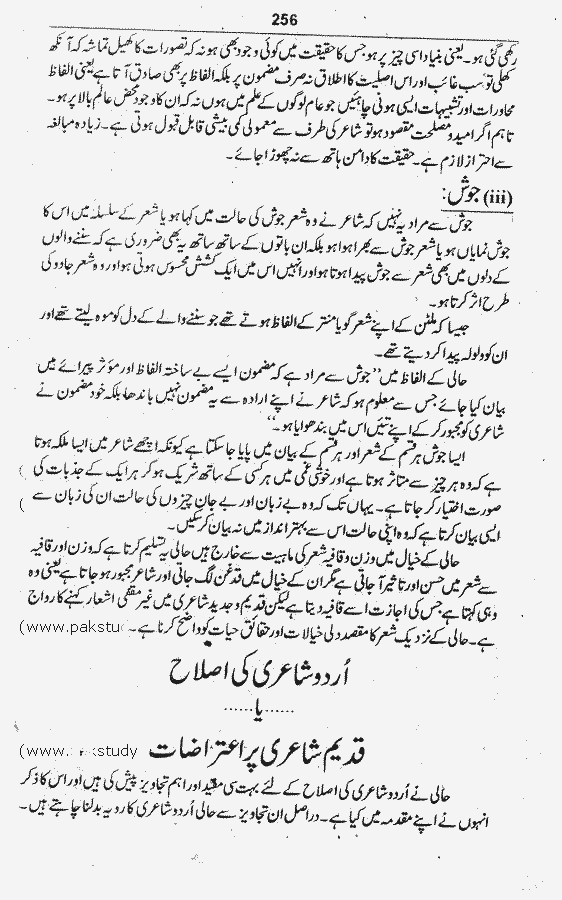 256
رکھی گئی ہو۔ یعنی بنیاد اسی چیز پر ہو جس کا حقیقت میں کوئی وجود بھی ہو نہ کہ تصورات کا کھیل تماشہ کہ آنکھ
کھلی تو سب غائب اور اس اصلیت کا اطلاق نہ صرف مضمون پر بلکہ الفاظ پر بھی صادق آتا ہے یعنی الفاظ
محاورات اور تشبیہات ایسی ہونی چاہئیں جو عام لوگوں کے علم میں ہوں نہ کہ ان کا وجود محض عالم بالا پر ہو۔
تاہم اگر امید و مصلحت مقصود ہو تو شاعر کی طرف سے معمولی کمی بیشی قابل قبول ہوتی ہے۔ زیادہ مبالغہ
سے احتراز لازم ہے۔ حقیقت کا دامن ہاتھ سے نہ چھوڑا جائے۔
(iii) جوش:
جوش سے مراد یہ نہیں کہ شاعر نے وہ شعر جوش کی حالت میں کہا ہو یا شعر کے سلسلہ میں اس کا
جوش نمایاں ہو یا شعر جوش سے بھرا ہوا ہو بلکہ ان باتوں کے ساتھ ساتھ یہ بھی ضروری ہے کہ سننے والوں
کے دلوں میں بھی شعر سے جوش پیدا ہوتا ہو اور انہیں اس میں ایک کشش محسوس ہوتی ہو اور وہ شعر جادو کی
طرح اثر کرتا ہو۔
جیسا کہ ملٹن کے اپنے شعر گویا منتر کے الفاظ ہوتے تھے جو سننے والے کے دل کو موہ لیتے تھے اور
ان کو ولولہ پیدا کر دیتے تھے۔
حالی کے الفاظ میں ”جوش سے مراد ہے کہ مضمون ایسے بے ساختہ الفاظ اور مؤثر پیرائے میں
بیان کیا جائے جس سے معلوم ہو کہ شاعر نے اپنے ارادہ سے یہ مضمون نہیں باندھا، بلکہ خود مضمون نے
شاعری کو مجبور کر کے اپنے تئیں اس میں بندھوایا ہو۔“
ایسا جوش ہر قسم کے شعر اور ہر قسم کے بیان میں پایا جا سکتا ہے کیونکہ اچھے شاعر میں ایسا ملکہ ہوتا
ہے کہ وہ ہر چیز سے متاثر ہوتا ہے اور خوشی غمی میں ہر کسی کے ساتھ شریک ہو کر ہر ایک کے جذبات کی
صورت اختیار کر جاتا ہے۔ یہاں تک کہ وہ بے زبان اور بے جان چیزوں کی حالت ان کی زبان سے
ایسی بیان کرتا ہے کہ وہ اپنی حالت اس سے بہتر انداز میں نہ بیان کر سکیں۔
حالی کے خیال میں وزن و قافیہ شعر کی ماہیت سے خارج ہیں حالی یہ تسلیم کرتا ہے کہ وزن اور قافیہ
سے شعر میں حسن اور تاثیر آ جاتی ہے مگر ان کے خیال میں قدغن لگ جاتی اور شاعر مجبور ہو جاتا ہے یعنی وہ
وہی کہتا ہے جس کی اجازت اسے قافیہ دیتا ہے لیکن قدیم و جدید شاعری میں غیر مقفی اشعار کہنے کا رواج
ہے۔ حالی کے نزدیک شعر کا مقصد دلی خیالات اور حقائق حیات کو واضح کرنا ہے۔ (www.pakstu
اُردو شاعری کی اصلاح
......یا......
قدیم شاعری پر اعتراضات (www. kstudy
حالی نے اُردو شاعری کی اصلاح کے لئے بہت سی مفید اور اہم تجاویز پیش کی ہیں اور اس کا ذکر
انہوں نے اپنے مقدمہ میں کیا ہے۔ دراصل ان تجاویز سے حالی اُردو شاعری کا رویہ بدلنا چاہتے ہیں۔